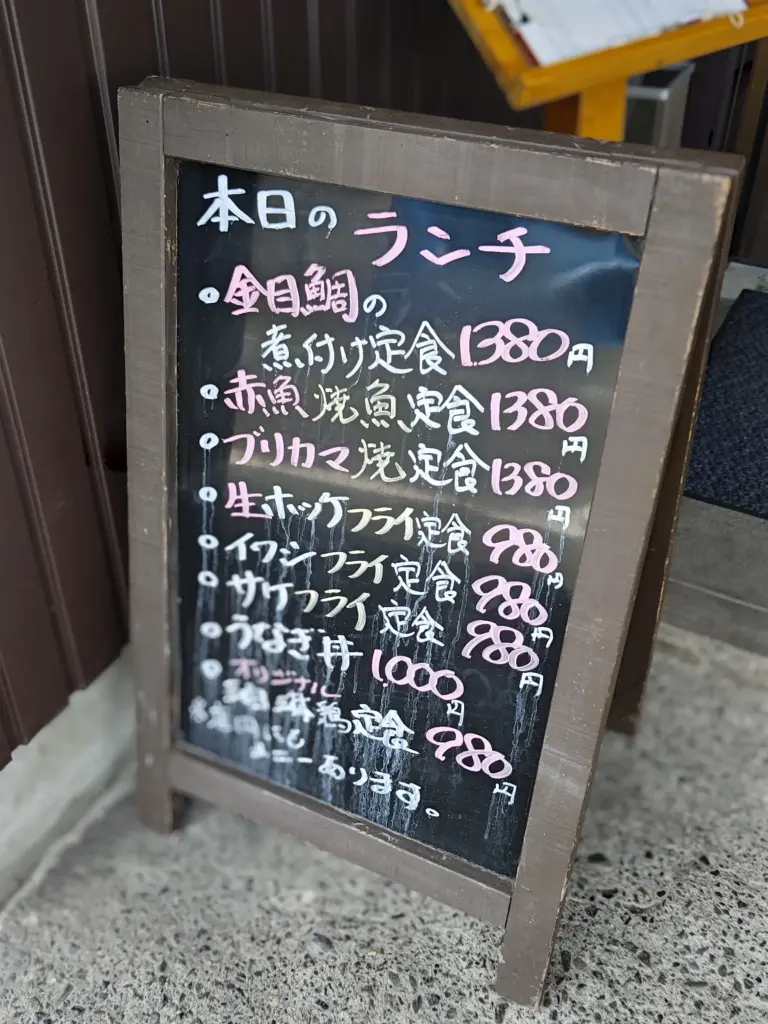 本日の ランチ
金目鯛の
煮付け定食 1380円
赤魚焼魚定食 1380円
ブリカマ焼定食 1380円
生ホッケフライ定食 980円
イワシフライ定食 980円
サケフライ定食 980円
うなぎ丼 1000円
オリジナル
鶏定食 980円
あります。